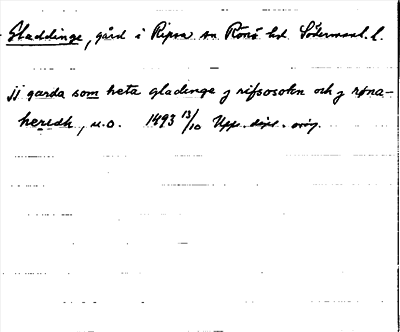 Gladdinge, gård i Ripsa sn Rönö hd. Södermanl. l.
jj garda som heta gladinge j rifsosokn och j røna-
heredh, u.o. 1493 13/10 Upps. dipl. orig.